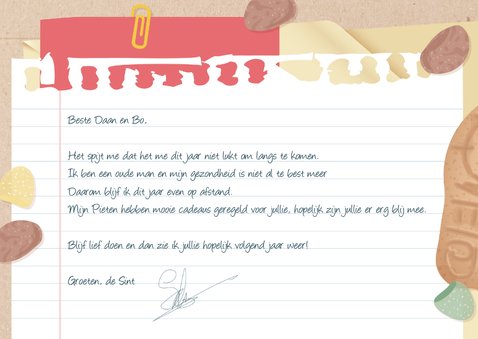 Beste Daan en Bo,
Het spijt me dat het me dit jaar niet lukt om langs te komen.
Ik ben een oude man en mijn gezondheid is niet al te best meer
Daarom blijf ik dit jaar even op afstand.
Mijn Pieten hebben mooie cadeaus geregeld voor jullie, hopelijk zijn jullie er erg blij mee.
Blijf lief doen en dan zie ik jullie hopelijk volgend jaar weer!
Groeten, de Sint